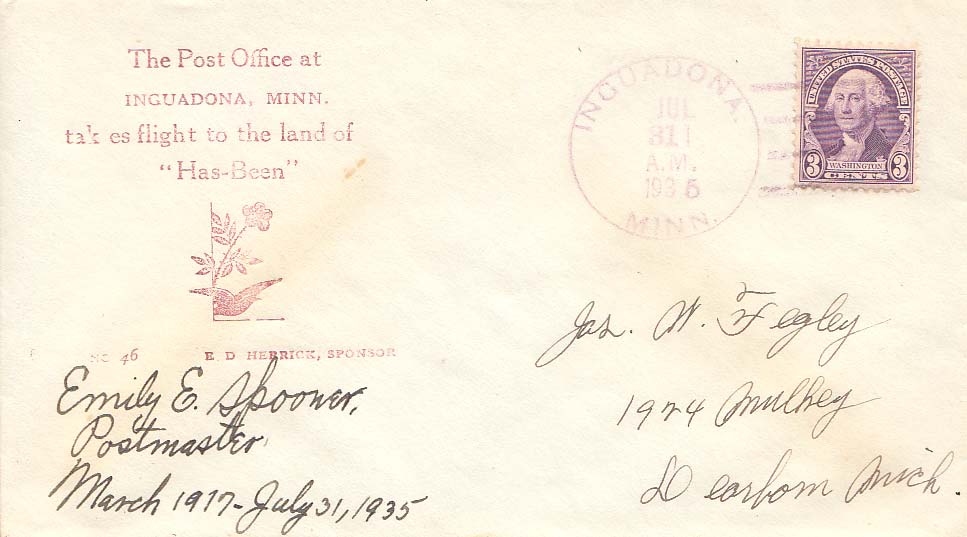 The Post Office at
INGUADONA, MINN.
tak es flight to the land of
"Has-Been"
NO 46 E D HERRICK, SPONSOR
Emily E. Spooner,
Postmaster
March 1917-July 31, 1935
INGUADONA.
JUL
31
A.M.
1935
MINN.
UNITED STATES POSTAGE
3 WASHINGTON 3
CENTS
Jas. W. Fegley
1924 Mulkey
Dearborn Mich.